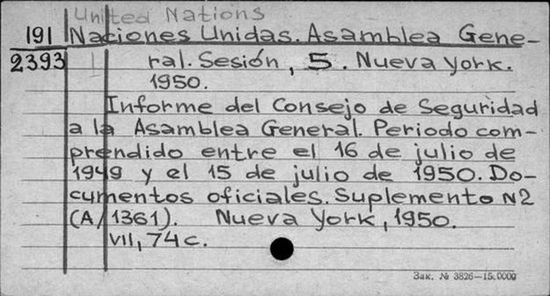 United Nations
191 Naciones Unidas. Asamblea Gene-
2393 ral. Sesión, 5. Nueva York.
1950.
Informe del Consejo de Seguridad
a la Asamblea General. Periodo com-
prendido entre el 16 de julio de
1949 y el 15 de julio de 1950. Do-
cumentos oficiales. Suplemento N2
(A/1361). Nueva York, 1950.
VII, 74 c.
Зак. № 3826—15.000